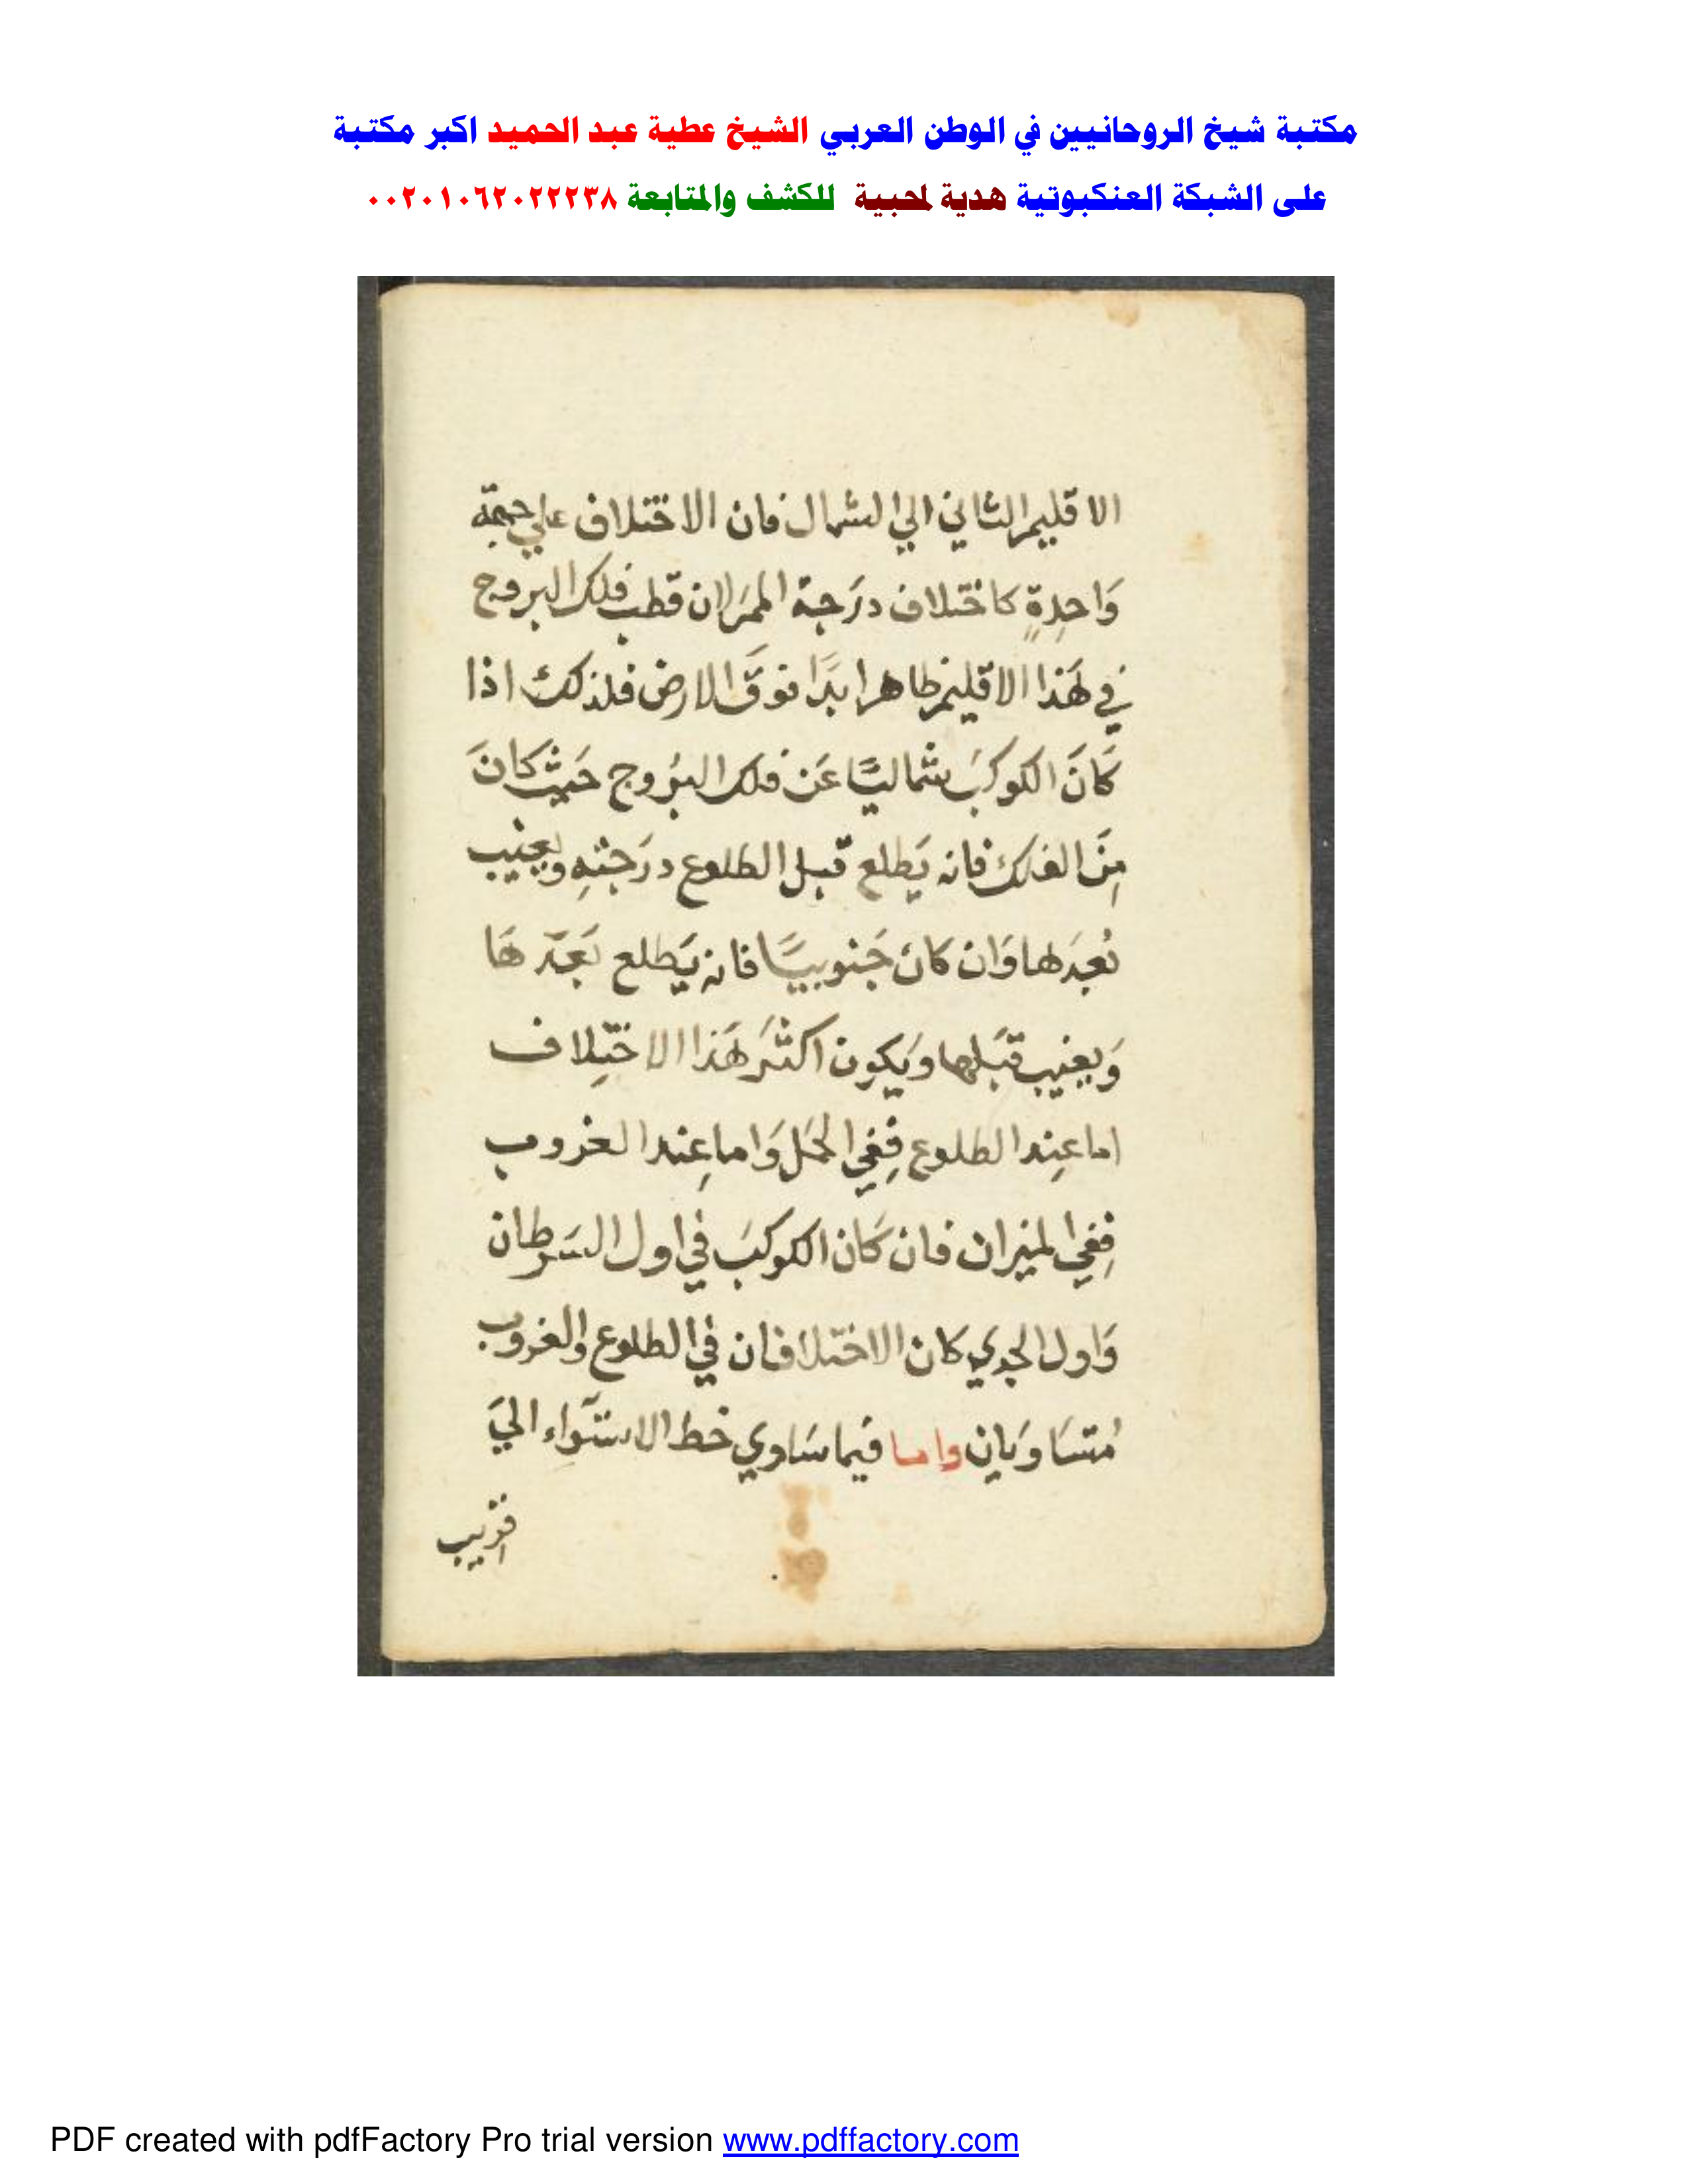 مكتبة شيخ الروحانيين في الوطن العربي الشيخ عطية عبد الحميد اكبر مكتبة
على الشبكة العنكبوتية هدية لمحبية للكشف والمتابعة ٠٠٢٠١٠٦٢٠٢٢٢٣٨
الاقليم الثاني الي الشمال فان الاختلاف علي جهة
وَاحِدةٍ كاختلاف درَجة الممَر لان قطب فلك البروج
في هَذا الاقليم ظاهر ابدًا فوقَ الارض فلذلك اذا
كَانَ الكوكبَ شماليًا عَن فلك البرُوج حَيث كانَ
مِنَ الفلك فانه يَطلع قبل الطلوع درَجتِهِ ويغيب
بُعدَها وَان كانَ جَنوبيًا فانه يَطلع بَعدَها
وَيغيب قبَلها وَيكون اكثَر هَذا الاختِلاف
اما عِند الطلوع فِفي الحمَل وَاما عِند الغروب
فِفي الميزان فان كَان الكوكبَ في اول السَرطان
وَاول الجدي كان الاختلافان في الطلوع والغروب
مُتسَاوَيان واما فيما سَاوي خط الاستَوِاء اليَ
قريب
PDF created with pdfFactory Pro trial version www.pdffactory.com